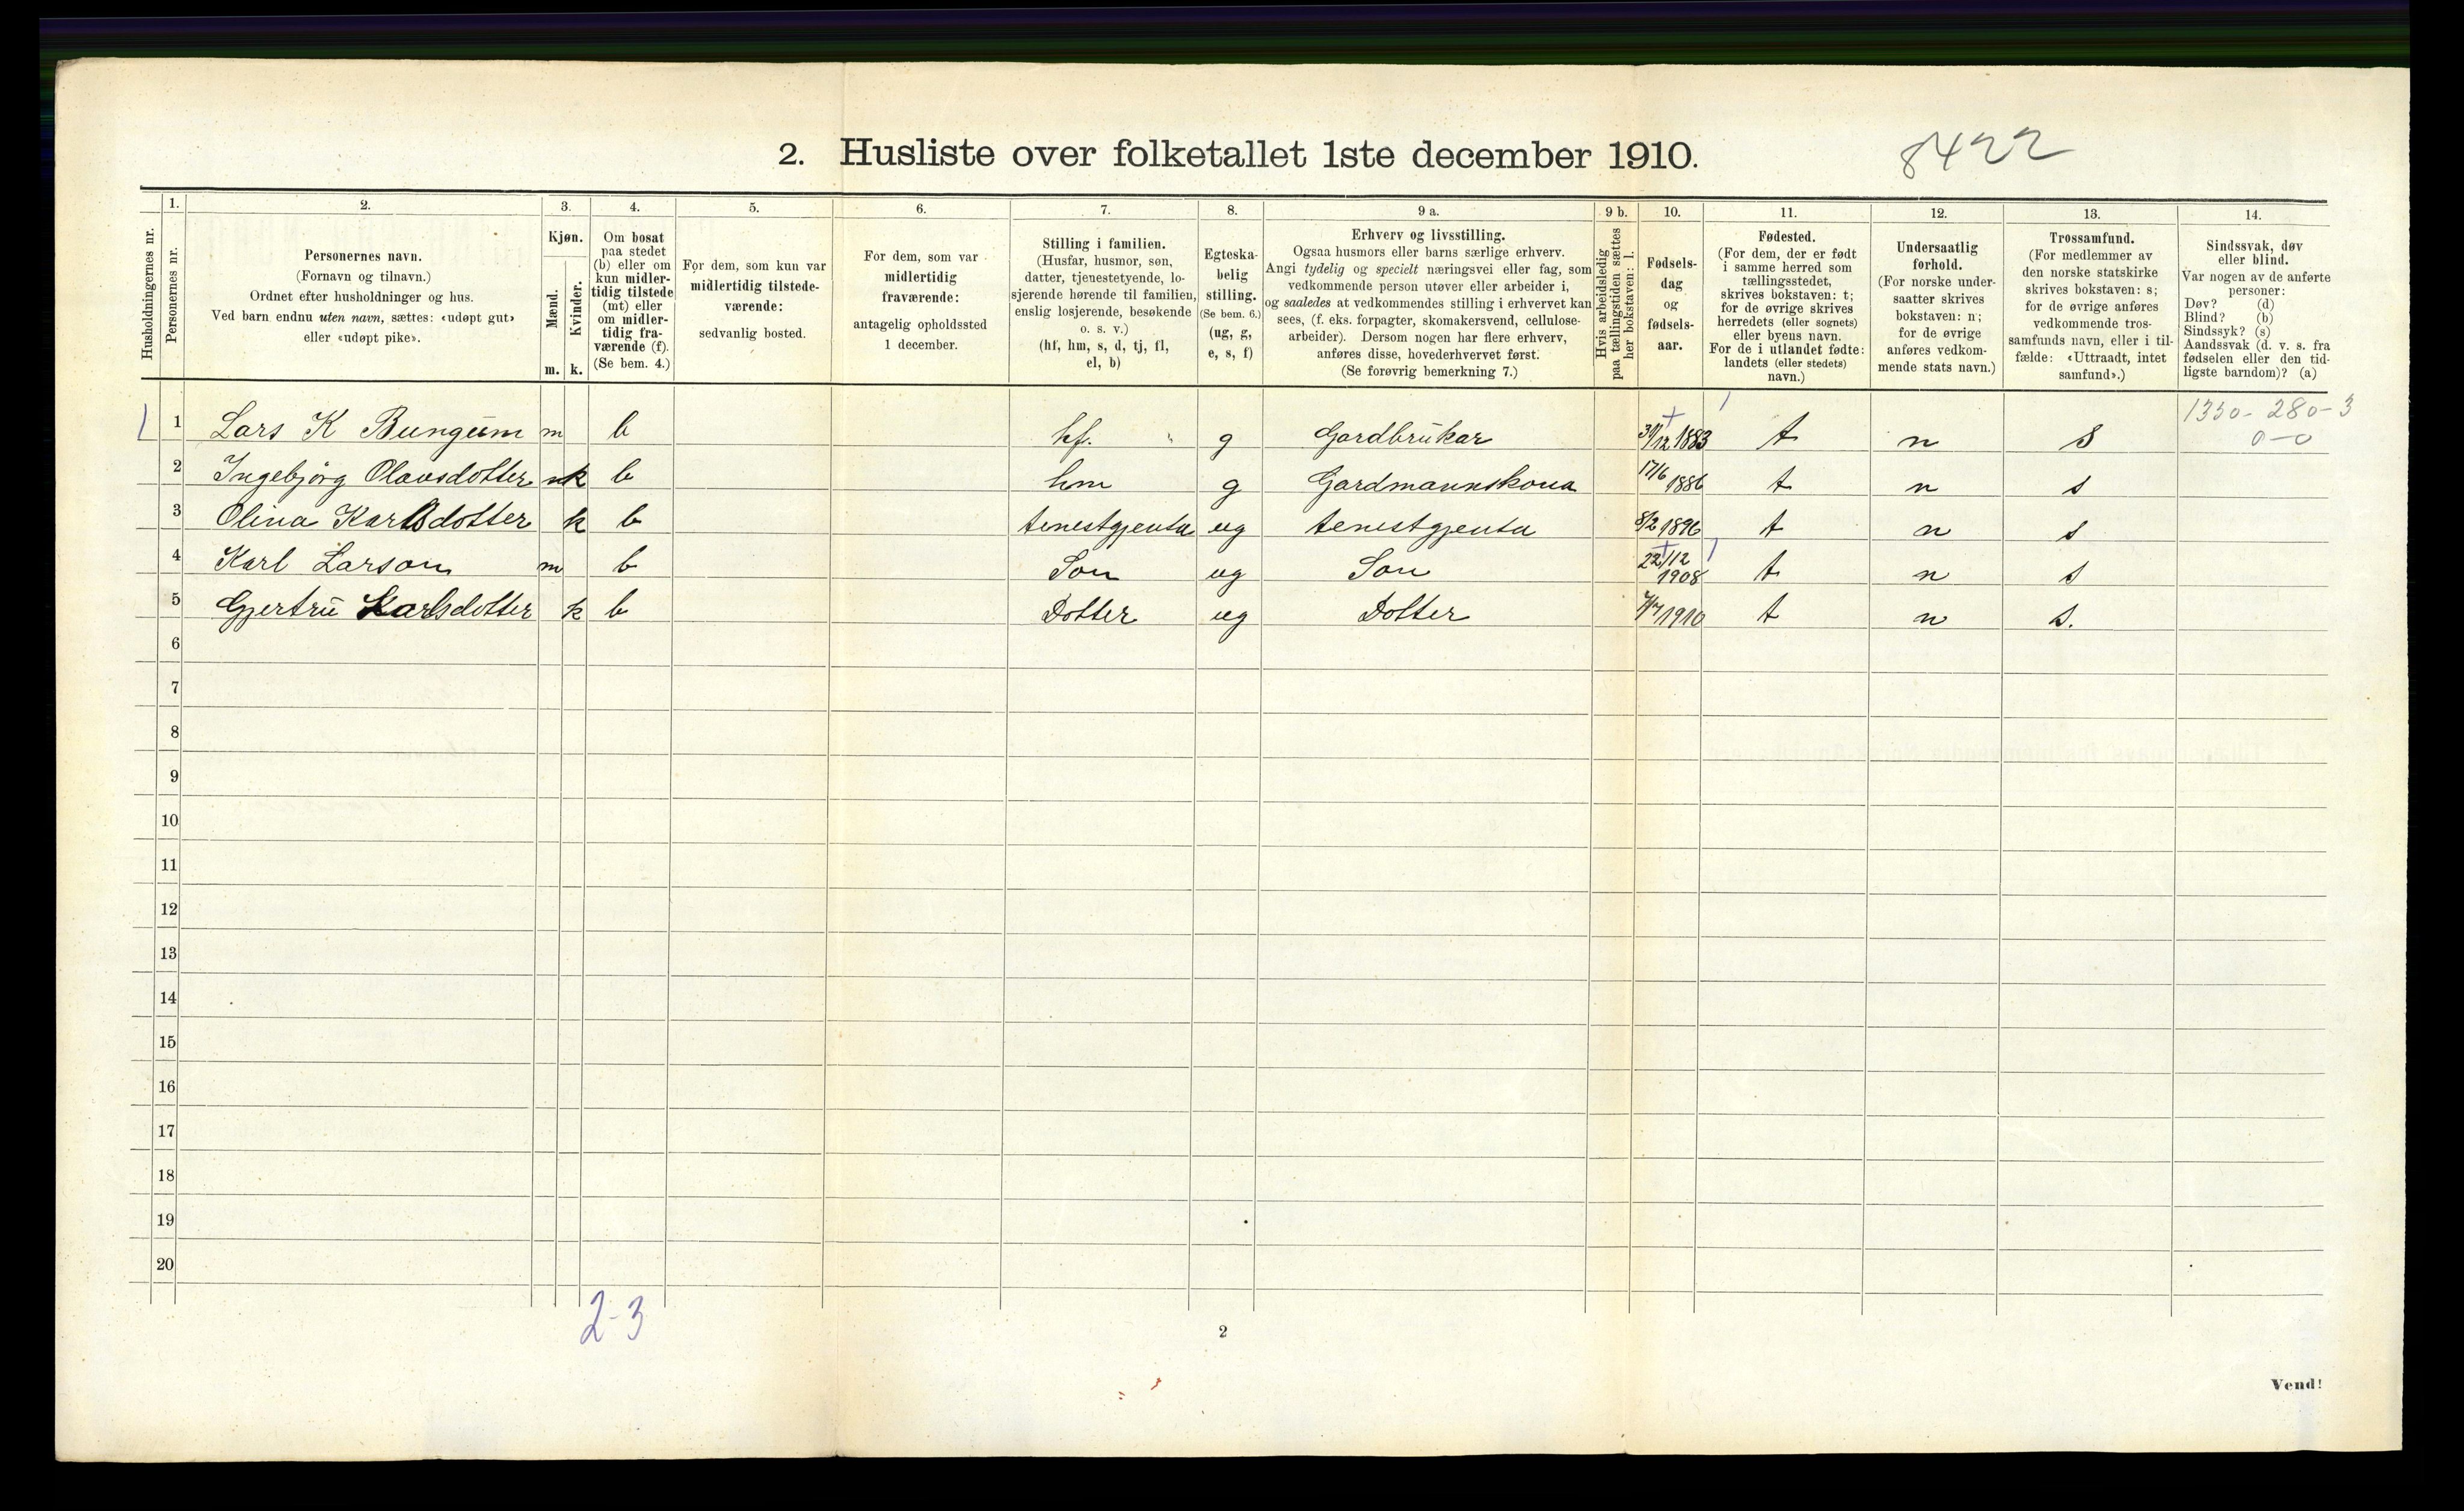 2. Husliste over folketallet 1ste december 1910.
8422
Husholdningernes nr.
1.
Personernes nr.
2.
Personernes navn.
(Fornavn og tilnavn.)
Ordnet efter husholdninger og hus.
Ved barn endnu uten navn, sættes: «udøpt gut»
eller «udøpt pike».
3.
Kjøn.
Mænd.
Kvinder.
m. k.
4.
Om bosat
paa stedet
(b) eller om
kun midler-
tidig tilstede
(mt) eller
om midler-
tidig fra-
værende (f).
(Se bem. 4.)
5.
For dem, som kun var
midlertidig tilstede-
værende:
sedvanlig bosted.
6.
For dem, som var
midlertidig
fraværende:
antagelig opholdssted
1 december.
7.
Stilling i familien.
(Husfar, husmor, søn,
datter, tjenestetyende, lo-
sjerende hørende til familien,
enslig losjerende, besøkende
o. s. v.)
(hf, hm, s, d, tj, fl,
el, b)
8.
Egteska-
belig
stilling.
(Se bem. 6.)
(ug, g,
e, s, f)
9 a.
Erhverv og livsstilling.
Ogsaa husmors eller barns særlige erhverv.
Angi tydelig og specielt næringsvei eller fag, som
vedkommende person utøver eller arbeider i,
og saaledes at vedkommendes stilling i erhvervet kan
sees, (f. eks. forpagter, skomakersvend, cellulose-
arbeider). Dersom nogen har flere erhverv,
anføres disse, hovederhvervet først.
(Se forøvrig bemerkning 7.)
9 b.
Hvis arbeidsledig
paa tællingstiden sættes
her bokstaven: l.
10.
Fødsels-
dag
og
fødsels-
aar.
11.
Fødested.
(For dem, der er født
i samme herred som
tællingsstedet,
skrives bokstaven: t;
for de øvrige skrives
herredets (eller sognets)
eller byens navn.
For de i utlandet fødte:
landets (eller stedets)
navn.)
12.
Undersaatlig
forhold.
(For norske under-
saatter skrives
bokstaven: n;
for de øvrige
anføres vedkom-
mende stats navn.)
13.
Trossamfund.
(For medlemmer av
den norske statskirke
skrives bokstaven: s;
for de øvrige anføres
vedkommende tros-
samfunds navn, eller i til-
fælde: «Uttraadt, intet
samfund».)
14.
Sindssvak, døv
eller blind.
Var nogen av de anførte
personer:
Døv? (d)
Blind? (b)
Sindssyk? (s)
Aandssvak (d. v. s. fra
fødselen eller den tid-
ligste barndom)? (a)
1330-280-3
0-0
1 1 Lars K Bungum m b hf. g Gardbrukar /12 1883 t n s
2 Ingebjørg Olavsdotter k b hm g Gardmannskona 17/6 1886 t n s
3 Olina Karlsdotter k b tenestgjenta ug tenestgjenta 8/2 1896 t n s
4 Karl Larson m b Son ug Son 22/12 1908 t n s
5 Gjertru Larsdotter k b Dotter ug Dotter 1910 t n s.
6
7
8
9
10
11
12
13
14
15
16
17
18
19
20
2-3
2
Vend!